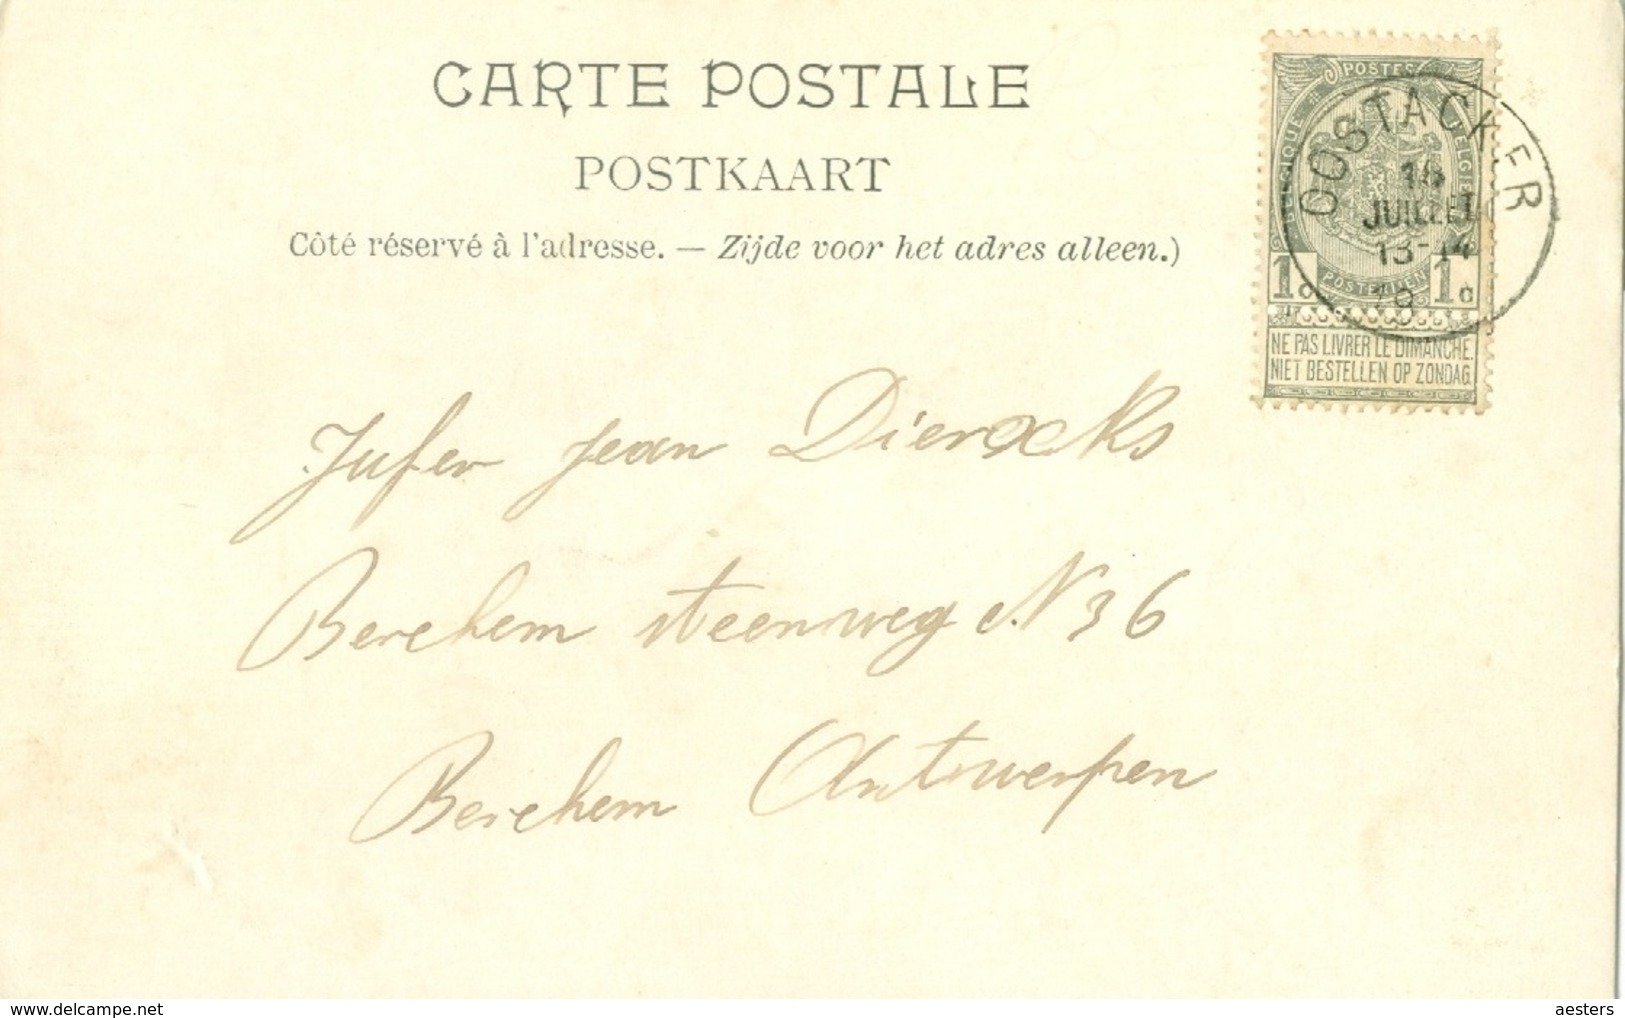 CARTE POSTALE
POSTKAART
Côté réservé à l'adresse. — Zijde voor het adres alleen.)
POSTES
BELGIQUE BELGIË
POSTERIJEN
1c 1c
NE PAS LIVRER LE DIMANCHE.
NIET BESTELLEN OP ZONDAG
OOSTACKER
15
JUILLET
13-14
Jufer Jean Dierckx
Berchem steenweg N 36
Berchem Antwerpen
https://www.delcampe.net
aesters